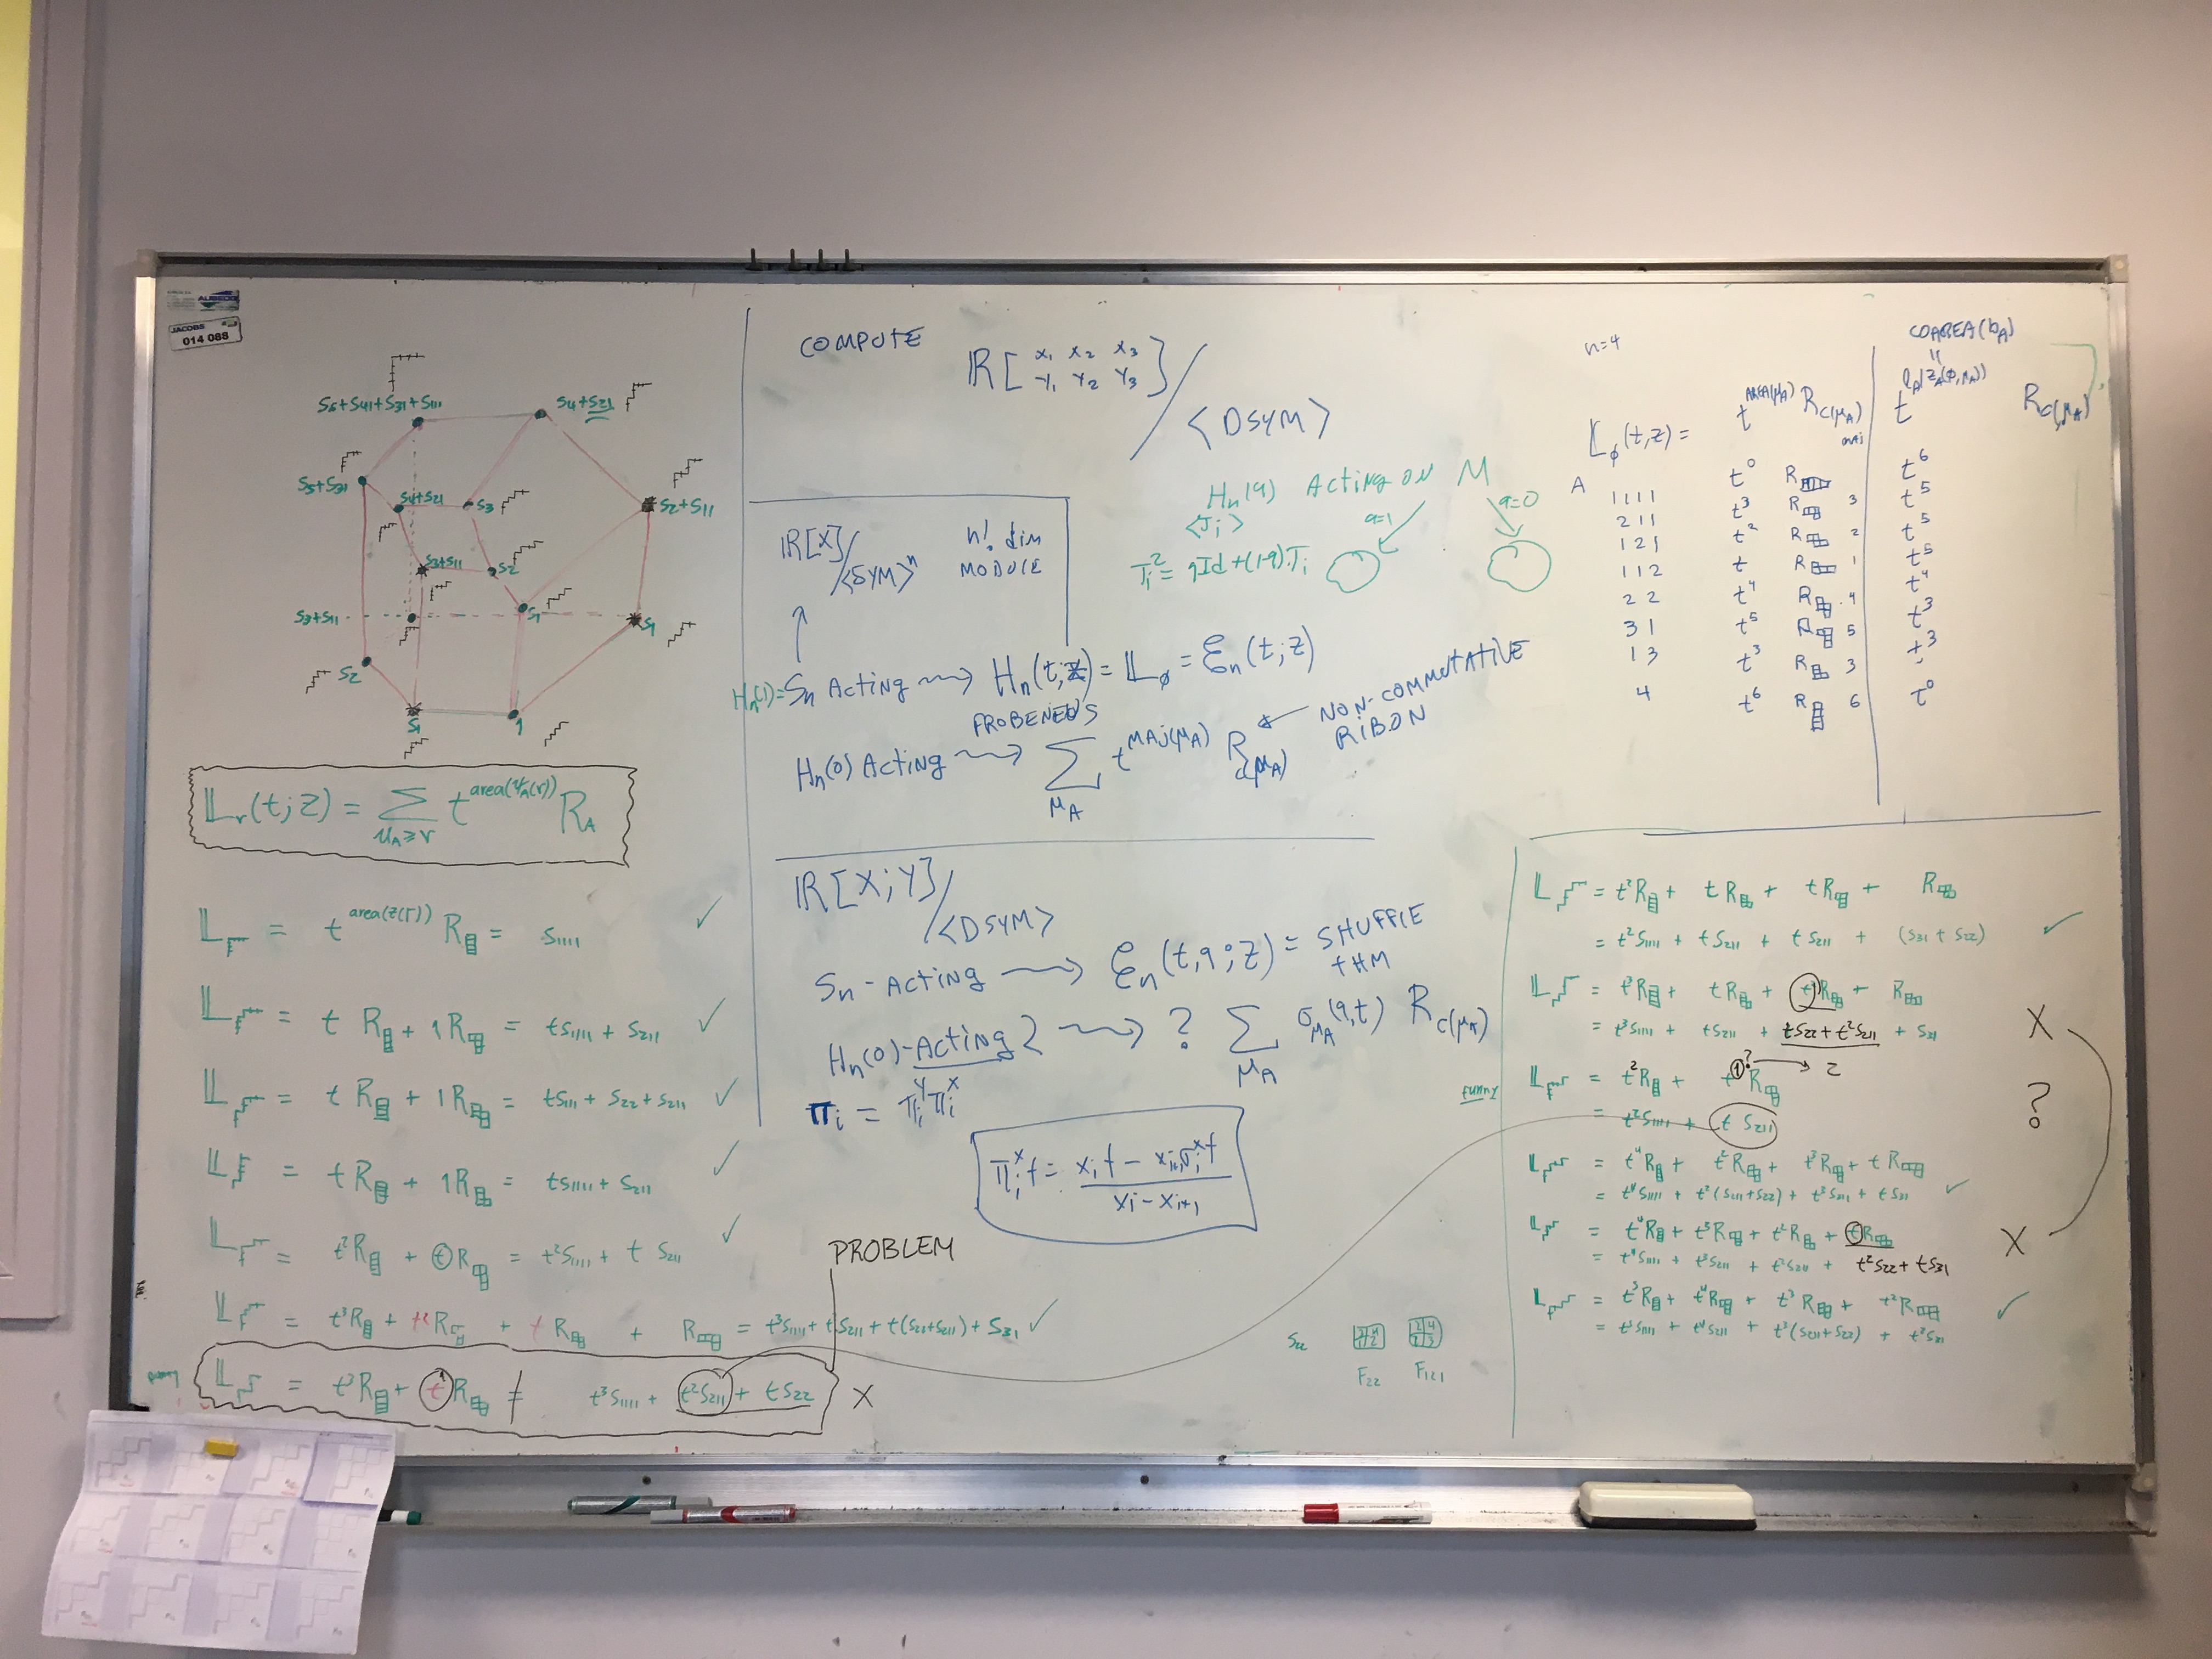 JACOBS
014 088
S5+S41+S31+S111
S4+S21
S5+S31
S4+S21
S3
S2+S11
S3+S11
S2
S3+S11
S1
S1
S2
S1
1
𝕃r(t;z) = Σ μA≥r t^area(ψA(r)) RA
𝕃 = t^area(z(r)) R = S1111 ✓
𝕃 = t R + 1R = tS1111 + S211 ✓
𝕃 = t R + 1R = tS1111 + S22 + S211 ✓
𝕃 = tR + 1R = tS1111 + S211 ✓
𝕃 = t²R + tR = t²S1111 + t S211 ✓
𝕃 = t³R + t²R + t R + R = t³S1111 + t²S211 + t(S22+S211) + S31 ✓
𝕃 = t³R + t R ≠ t³S1111 + t²S211 + tS22 X
PROBLEM
COMPUTE
ℝ[ x1 x2 x3
y1 y2 y3 ] / <DSYM>
Hn(q) Acting on M
<Ti>
q=1
q=0
Ti² = qId + (1-q)Ti
ℝ[X]/<SYM>
n! dim
MODULE
Hn(1)= Sn Acting ⇝ Hn(t;z) = 𝕃ϕ = ℰn(t;z)
FROBENEUS
Hn(0) Acting ⇝ Σ μA t^MAJ(μA) R c(μA) ← NON-COMMUTATIVE
RIBON
ℝ[X;Y]/<DSYM>
Sn-Acting ⇝ ℰn(t,q;z) = SHUFFLE
tHM
Hn(0)-Acting ⇝ ? Σ μA σμA(q,t) R c(μA)
πi = πi^y πi^x
πi^x f = (xi f - xi+1 σi^x f) / (xi - xi+1)
S22
F22
F121
n=4
COAREA(bA)
𝕃ϕ(t,z) =
t^AREA(μA) R c(μA)
MAJ
t
R c(μA)
A
1111 t⁰ R t⁶
211 t³ R 3 t⁵
121 t² R 2 t⁵
112 t R 1 t⁵
22 t⁴ R 4 t⁴
31 t⁵ R 5 t³
13 t³ R 3 t³
4 t⁶ R 6 t⁰
𝕃 = t²R + tR + tR + R
= t²S1111 + tS211 + tS211 + (S31 + S22) ✓
𝕃 = t³R + tR + t R + R
= t³S1111 + tS211 + tS22 + t²S211 + S31 X
funny
𝕃 = t²R + t R
1? → 2
= t²S1111 + t S211 ?
𝕃 = t⁴R + t²R + t³R + tR
= t⁴S1111 + t²(S211+S22) + t³S211 + tS31 ✓
𝕃 = t⁴R + t³R + t²R + tR
= t⁴S1111 + t³S211 + t²S211 + t²S22 + tS31 X
𝕃 = t⁵R + t⁴R + t³R + t²R
= t⁵S1111 + t⁴S211 + t³(S211+S22) + t²S31 ✓